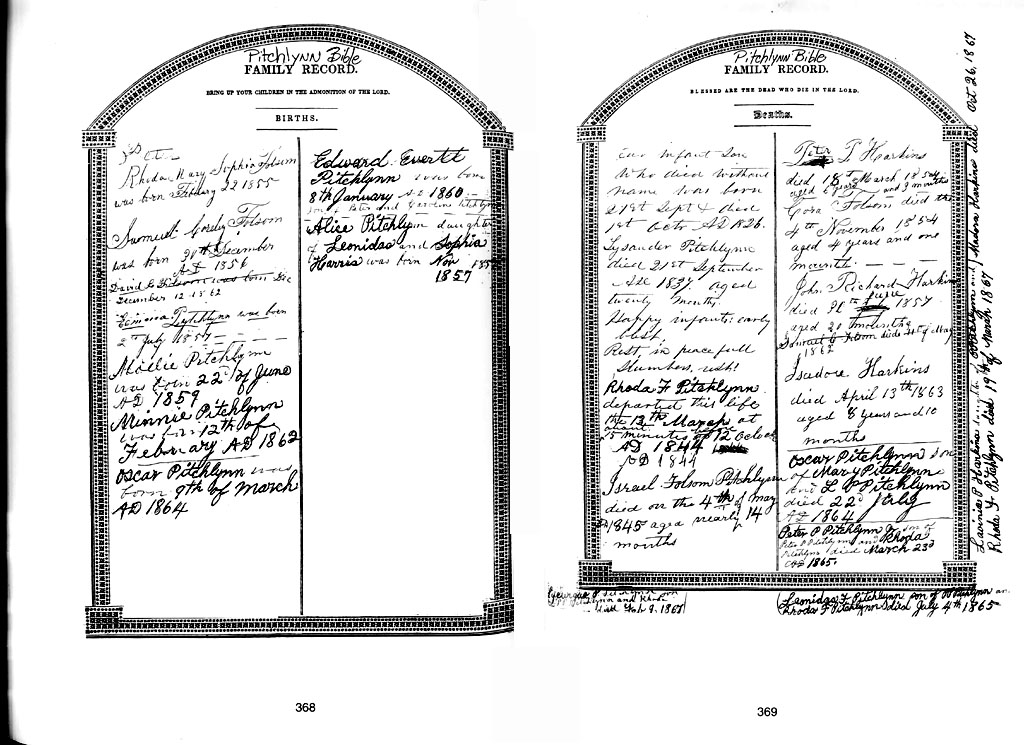 Pitchlynn Bible
FAMILY RECORD.
BRING UP YOUR CHILDREN IN THE ADMONITION OF THE LORD.
BIRTHS.
Rhoda Mary Sophia Folsom
was born Febuary 22 1855
Samuel Gordy Folsom
was born 20th December
AD 1856
David Folsom was born Dec
December 12 1862
Pitchlynn was born
2d July 1857
Mollie Pitchlynn
was born 22d of June
AD 1859
Minnie Pitchlynn
was born 12th of
February AD 1862
Oscar Pitchlynn was
born 9th of March
AD 1864
Edward Everett
Pitchlynn was born
8th January AD 1860
son of Peter and Caroline Pitchlynn
Alice Pitchlynn daughter
of Leonidas and Sophia
Harris was born Nov
1857
368
Pitchlynn Bible
FAMILY RECORD.
BLESSED ARE THE DEAD WHO DIE IN THE LORD.
Deaths.
Our infant Son
Who died without
name was born
21st Sept & died
1st Octo AD 1826.
Lysander Pitchlynn
died 21st September
AD 1837. aged
twenty months.
Happy infants: early
blest,
Rest, in peacefull
slumbers, rest!
Rhoda F Pitchlynn
departed this life
the 13th March at
about
15 minutes 12 Oclock
AD 1844
AD 1844
Israel Folsom Pitchlynn
died on the 4th of May
1845 aged nearly 14
months
T Harkins
died 18th March 1854
aged 6 years and 9 months
Cora Folsom died the
4th November 1854
aged 4 years and one
mounth
John Richard Harkins
died 20th June 1857
aged 20 mounths
Samuel G Folsom died 31st of May
1862
Isadore Harkins
died April 13th 1863
aged 8 years and 10
months
Oscar Pitchlynn son
of Mary Pitchlynn
and L P Pitchlynn
died 22d July
AD 1864
Peter P Pitchlynn Jr son of
Peter P Pitchlynn and Rhoda
Pitchlynn died March 23d
1865.
Pitchlynn and Rhoda
died Feb 9. 1867
Leonidas F Pitchlynn son of Pitchlynn an
Rhoda F Pitchlynn died July 4th 1865
Lavinia P Harkins daughter of Pitchlynn and Rhoda Harkins died Oct 26, 1867
Rhoda F Pitchlynn died 19th of March 1867
369